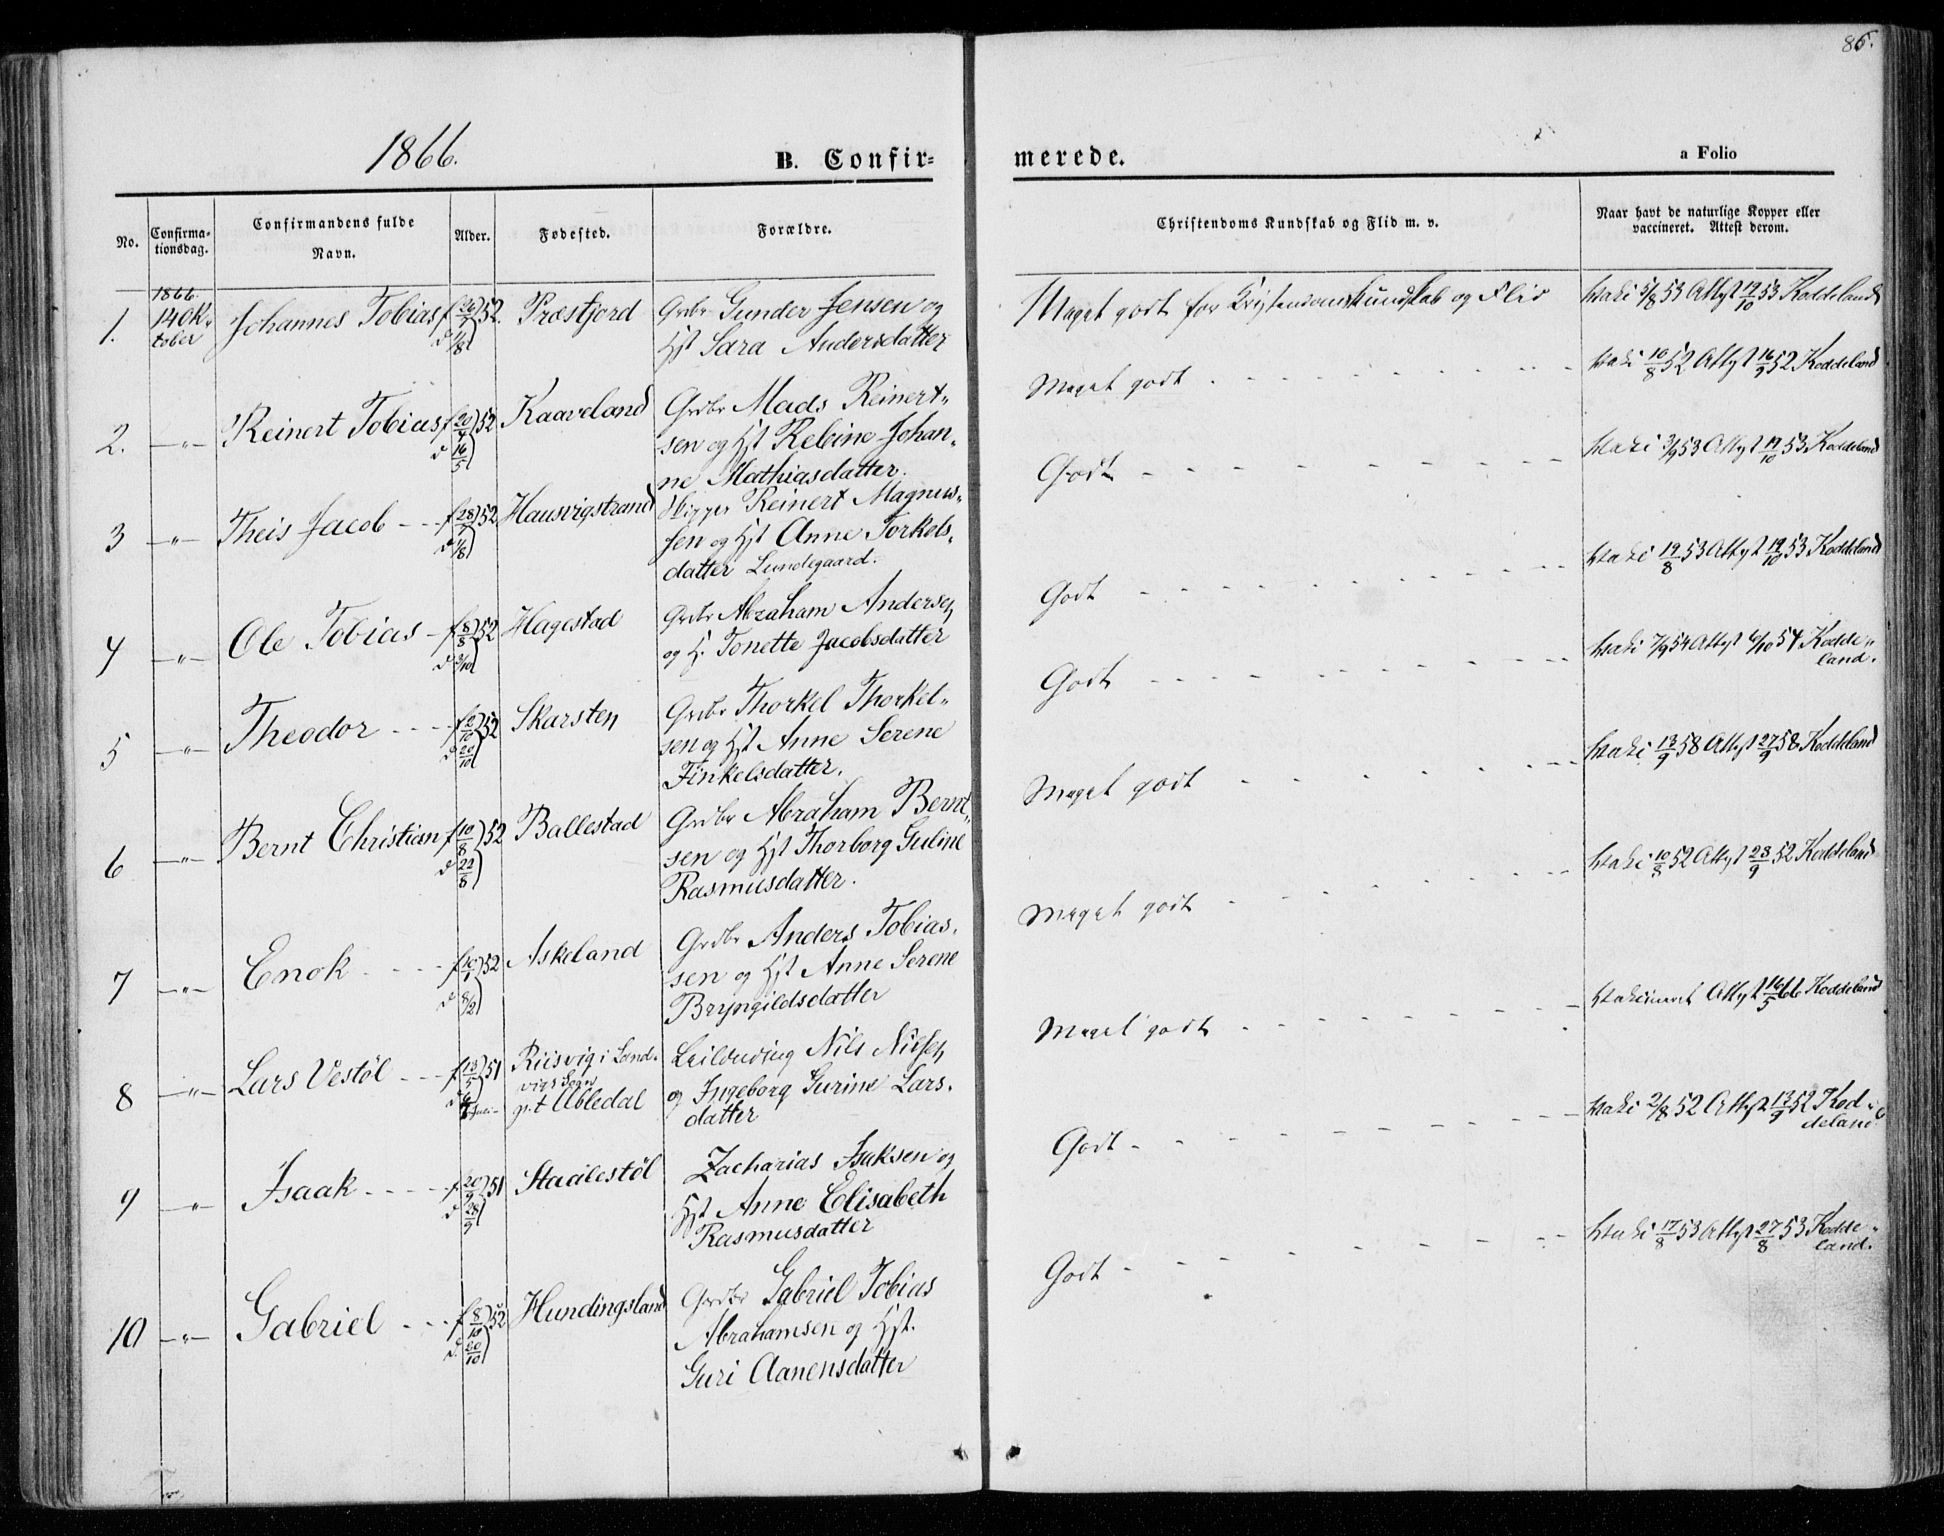 86.
1866.
B. Confir-
merede.
a Folio
No.
Confirma-
tionsdag.
Confirmandens fulde
Navn.
Alder.
Fødested.
Forældre.
Christendoms Kundskab og Flid m. v.
Naar havt de naturlige Kopper eller
vaccineret. Attest derom.
1. 1866. 14 Ok- tober Johannes Tobias f 26/7 52. d 1/8 Præstfjord Grdbr Gunder Jensen og
Hst Sara Andersdatter
Maget godt for Kristendomskundskab og Flid
Vakc 5/8 53 Attest 19/10 53 Koddeland
2. -"- Reinert Tobias f 20/4 52 d 16/5 Kaaveland Grdbr Mads Reinert-
sen og Hst Rebine Johan-
ne Mathiasdatter.
Maget godt
Vakc 10/8 52 Attest 16/9 52 Koddeland
3 -"- Theis Jacob f 28/7 52 d 1/8 Hausvigstrand Reinert Magnus-
sen og Hst Anne Torkels-
datter Lundegaard.
Godt
Vakc 3/9 53 Attest 19/10 53 Koddeland
4 -"- Ole Tobias f 8/8 52 d 3/10 Hagestad Grdbr Abraham Andersen
og H. Tonette Jacobsdatter
Godt
Vakc 19/8 53 Attest 19/10 53 Koddeland
5 -"- Theodor f 2/10 52 d 20/10 Skarsten Grdbr Thorkel Thorkel-
sen og Hst Anne Serene
Finkelsdatter.
Godt
Vakc 7/9 54 Attest 6/10 54 Kodde-
land.
6 -"- Bernt Christian f 10/8 52 d 22/8 Ballestad Grdbr Abraham Bernt-
sen og Hst Thorborg Guline
Rasmusdatter.
Maget godt
Vakc 13/9 58 Attest 27/9 58 Koddeland
7 -"- Enok f 10/1 52 d 8/2 Askeland Grdbr Anders Tobias-
sen og Hst Anne Serene
Bryngildsdatter
Maget godt
Vakc 10/8 52 Attest 23/9 52 Koddeland
8 -"- Lars Vestøl f 13/5 51 Riisvig i Land-
vigs Sogn
Ubledal
Leilending Nils Nilsen
og Ingeborg Gurine Lars-
datter
Maget godt
Vakcineret Attest 16/5 66 Koddeland
9 " Isaak f 20/9 51 d 28/9 Staalestøl Zacharias Isaksen og
Hst Anne Elisabeth
Rasmusdatter
Godt
Vakc 2/8 52 Attest 13/9 52 Kod-
deland
10 -"- Gabriel f 8/10 52 d. 20/10 Hundingsland Grdbr Gabriel Tobias
Abrahamsen og Hst.
Guri Aanensdatter
Godt
Vakc 17/8 53 Attest 27/8 53 Kodde-
land.